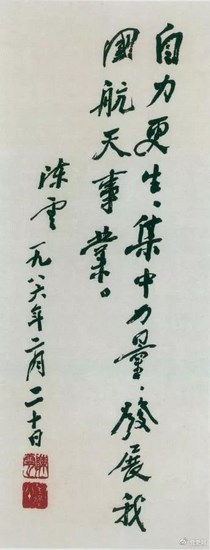 自力更生、集中力量、發展我
國航天事業。
陈雲 一九八六年二月二十日